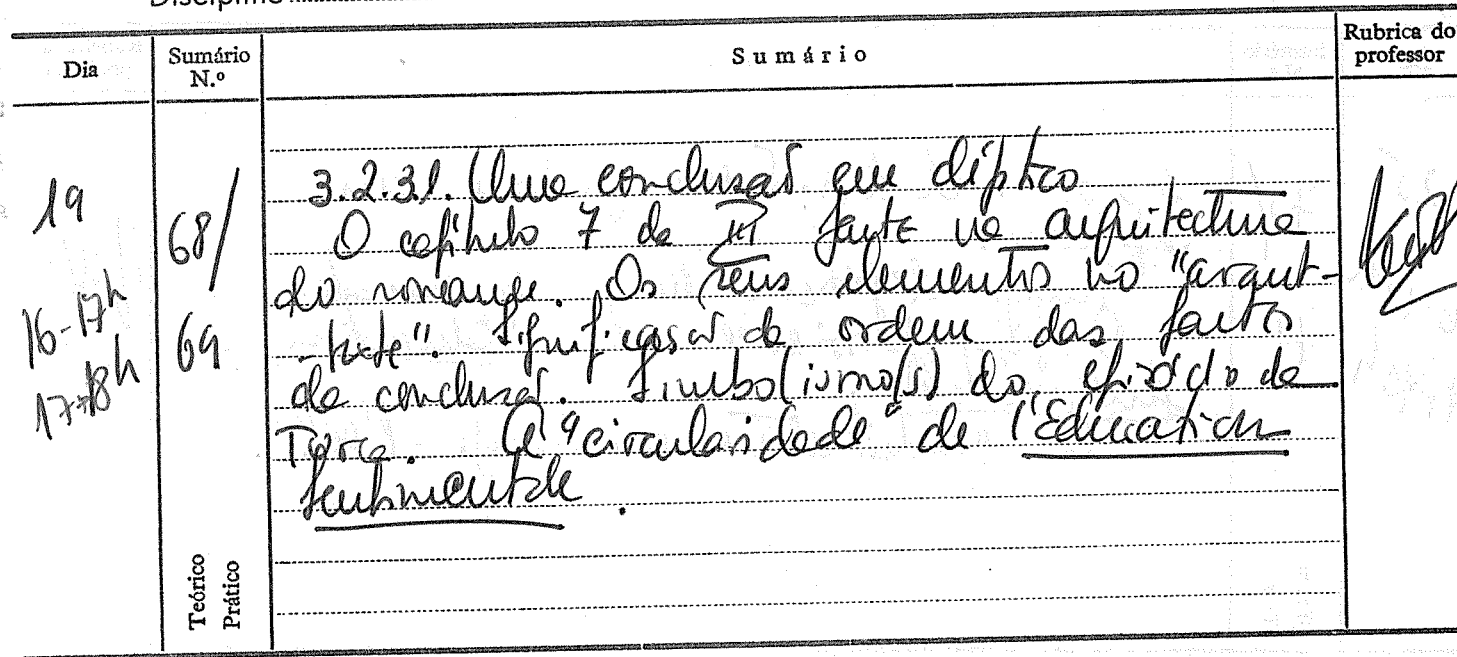 Dia
Sumário N.º
Sumário
Rubrica do professor
19
16-17h
17-18h
68/
69
3.2.31. Uma conclusão em díptico
O capítulo 7 da III parte na arquitectura
do romance. Os seus elementos no "avant-
-texte". Significação da ordem das partes
da conclusão. Simbolismo(s) do episódio da
Turca. A "circularidade" de l'Education
sentimentale.
Teórico
Prático